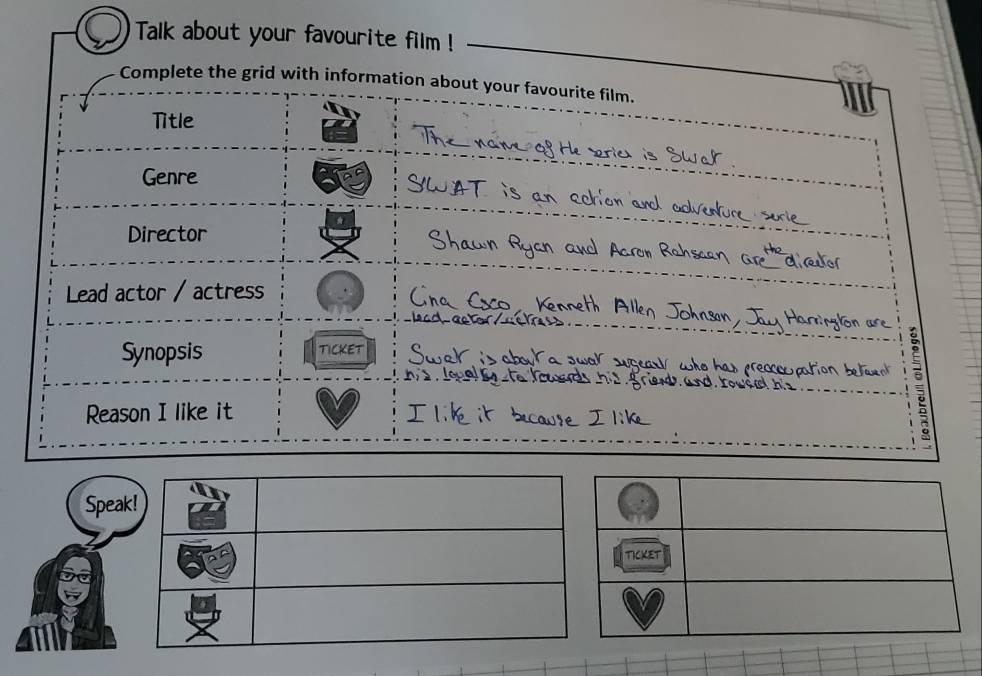 Talk about your favourite film !
Complete the grid with information about your favourite film.
Title
The name of the series is Swat.
Genre
SWAT is an action and adventure serie
Director
Shawn Ryan and Aaron Rahsaan are the director
Lead actor / actress
Lina Esco, Kenneth Allen Johnson, Jay Harrington are
lead actor/actress
Synopsis
TICKET
Swat is about a swat who has preoccupation
his to towards his friends and his
Reason I like it
I like it because I like
L Beaubreuil @Limoges
Speak!
TICKET